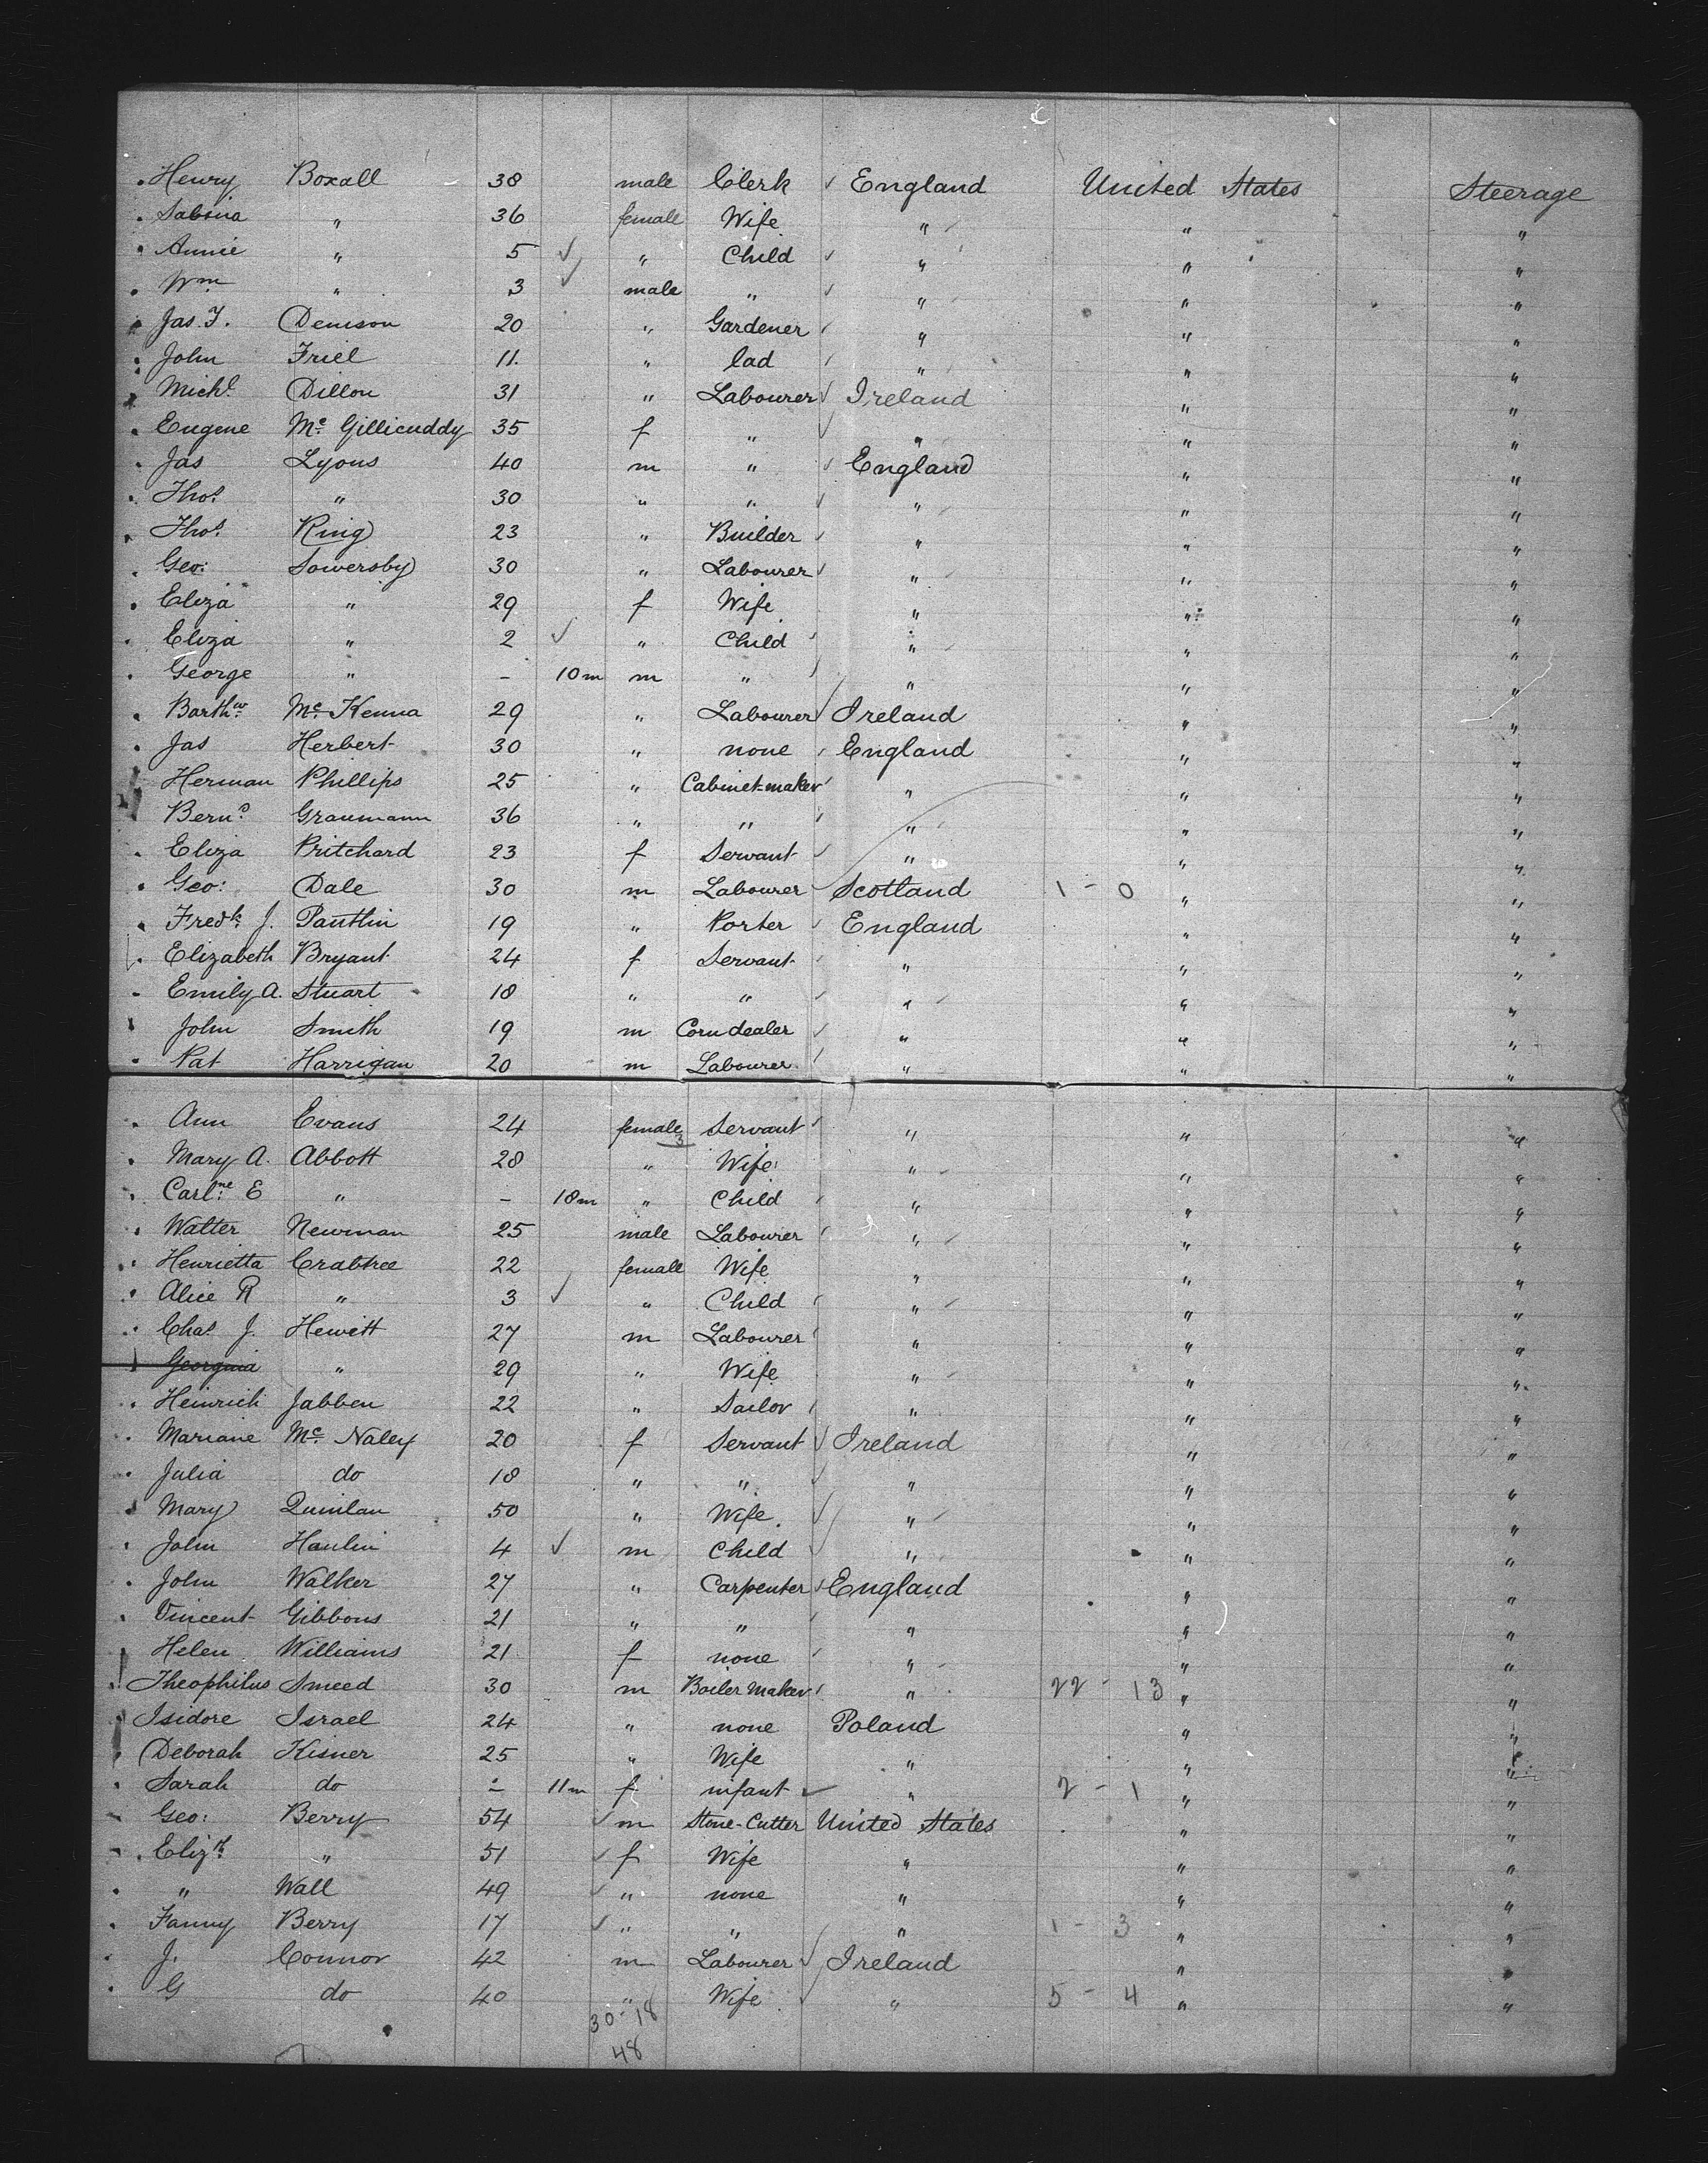 Henry Boxall 38 male Clerk ✓ England United States Steerage
Sabina " 36 female Wife " " "
Annie " 5 ✓ " Child ✓ " " "
Wm " 3 ✓ male " ✓ " " "
Jas. T. Denison 20 " Gardener ✓ " " "
John Friel 11. " lad ✓ " " "
Michl Dillon 31 " Labourer ✓ Ireland " "
Eugene Mc Gillicuddy 35 f " ✓ " " "
Jas Lyons 40 m " ✓ England " "
Thos " 30 " " ✓ " " "
Thos King 23 " Builder ✓ " " "
Geo: Sowersby 30 " Labourer ✓ " " "
Eliza " 29 f Wife " " "
Eliza " 2 ✓ " Child ✓ " " "
George " - 10 m m " " " "
Barthw Mc Kenna 29 " Labourer ✓ Ireland " "
Jas Herbert 30 " none ✓ England " "
Herman Phillips 25 " Cabinet-maker ✓ " " "
Bernd Graumann 36 " " ✓ " " "
Eliza Pritchard 23 f Servant ✓ " " "
Geo: Dale 30 m Labourer ✓ Scotland 1 - 0 " "
Fredk J. Pantlin 19 " Porter ✓ England " "
Elizabeth Bryant 24 f Servant ✓ " " "
Emily A. Stuart 18 " " ✓ " " "
John Smith 19 m Corn dealer ✓ " " "
Pat Harrigan 20 m Labourer ✓ " " "
Ann Evans 24 female 3 Servant ✓ " " "
Mary A. Abbott 28 " Wife " " "
Carlne E " - 18 m " Child ✓ " " "
Walter Newman 25 male Labourer ✓ " " "
Henrietta Crabtree 22 female Wife " " "
Alice R " 3 ✓ " Child ✓ " " "
Chas J. Hewitt 27 m Labourer ✓ " " "
Georgina " 29 " Wife " " "
Heinrich Jabben 22 " Sailor ✓ " " "
Mariane Mc Naley 20 f Servant ✓ Ireland " "
Julia do 18 " " ✓ " " "
Mary Quinlan 50 " Wife. ✓ " " "
John Hanlin 4 ✓ m Child ✓ " " "
John Walker 27 " Carpenter ✓ England " "
Vincent Gibbons 21 " " ✓ " " "
Helen Williams 21 f none ✓ " " "
Theophilus Smeed 30 m Boiler Maker ✓ " 22 - 13 " "
Isidore Israel 24 " none Poland " "
Deborah Kisner 25 " Wife " " "
Sarah do - 11 m f infant ✓ " 2 - 1 " "
Geo: Berry 54 ✓ m Stone-Cutter United States " "
Elizh " 51 ✓ f Wife " " "
" Wall 49 ✓ " none " " "
Fanny Berry 17 ✓ " " " 1 - 3 " "
J. Connor 42 m Labourer ✓ Ireland " "
G do 40 " Wife ✓ " 5 - 4 " "
30 - 18
48